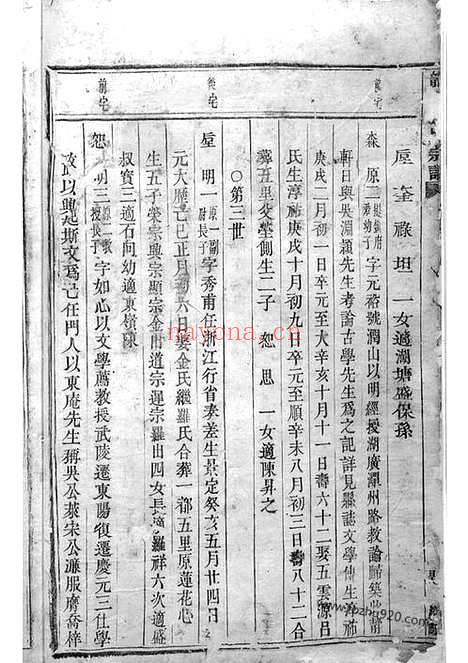 垕 荃 祿 坦 一女適湖塘盛保孫
前宅
森 原三 提領府君幼子 字元裕號潤山以明經授湖廣潭州路教諭歸築此靜
軒日與吳淵潁先生考論古學先生爲之記詳見縣誌文學傳生淳祐
庚戌二月初一日卒元至大辛亥十月十一日壽六十二娶五雲源
氏生淳祐庚戌十月初九日卒元至順辛未八月初三日壽八十二合
葬五里交塋側生二子 恕 思 一女適陳昇之
○第三世
後宅
垕 明一 長子 字秀甫任浙江行省奏差生景定癸亥五月廿四日
元大曆己巳正月初六日娶金氏繼羅氏合葬一都五里原蓮花心
生五子榮宗興宗顯宗金出道宗遲宗羅出四女長適羅祥六次適盛
叔實三適石向幼適東嶺陳
前宅
恕 明三 長子 字如心以文學薦教授武陵遷東陽復遷慶元三仕學
政以興起斯文爲己任門人以東庵先生稱吳公萊宋公濂服膺喬梓
宗譜
nayona.cn